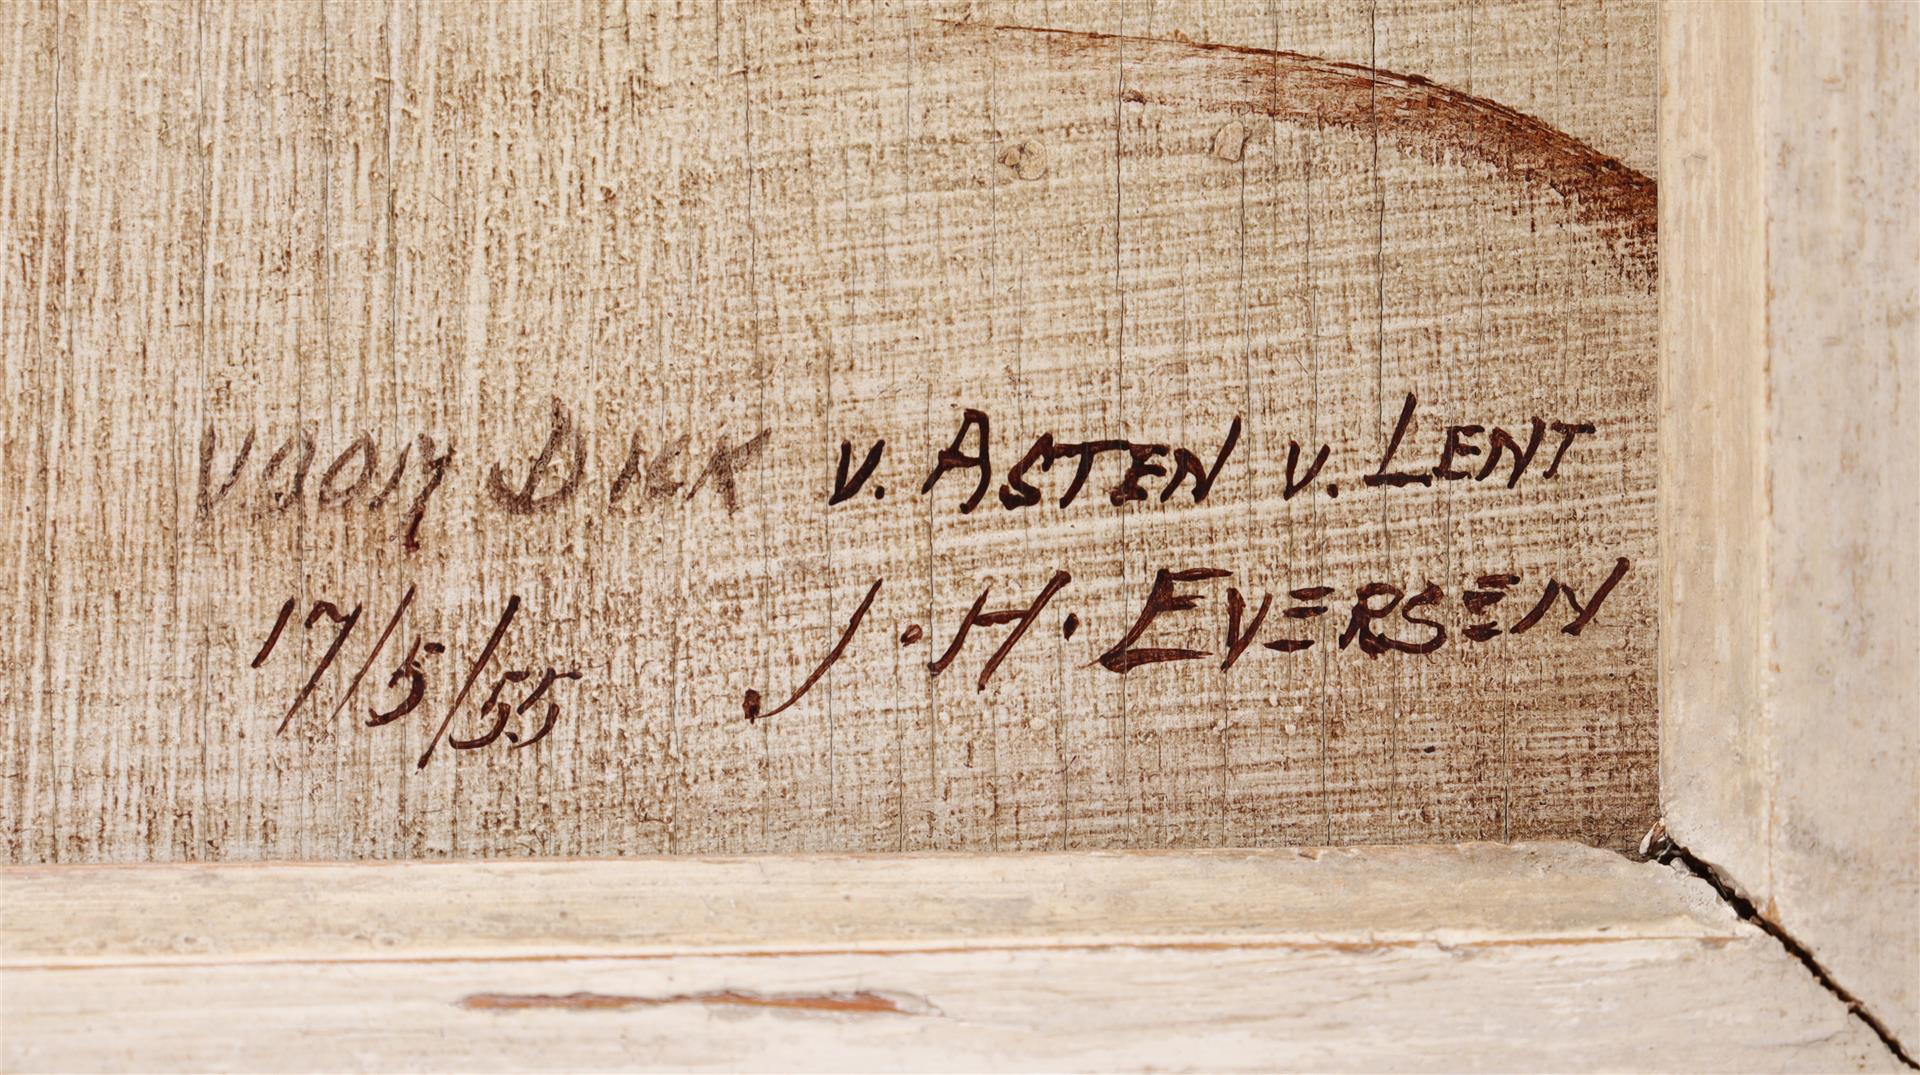 VOOR DICK V. ASTEN V. LENT
17/5/55 J. H. EVERSEN